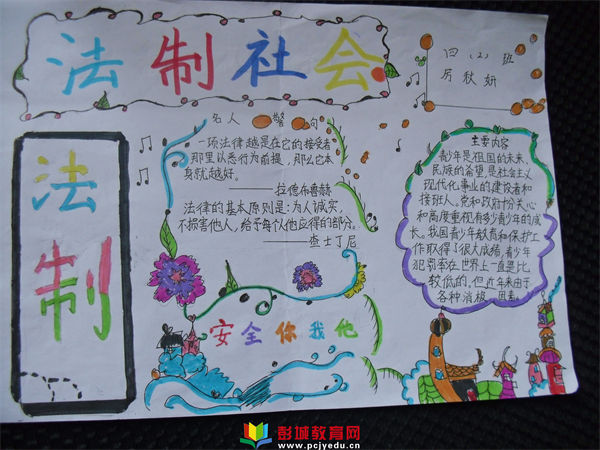 法制社会
四(2)班
房秋妍
法制
名人警句
一项法律越是在它的接受者
那里以恶行为前提,那么它本
身就越好。
——拉德布鲁赫
法律的基本原则是:为人诚实,
不损害他人,给予每个人他应得的部分。
——查士丁尼
安全你我他
主要内容
青少年是祖国的未来、
民族的希望,是社会主义
现代化事业的建设者和
接班人。党和政府十分关心
和高度重视有多少青少年的成
长。我国青少年教育和保护工
作取得了很大成绩,青少年
犯罪率在世界上一直是比
较低的,但近年来由于
各种消极 因素。
彭城教育网
www.pcjyedu.cn